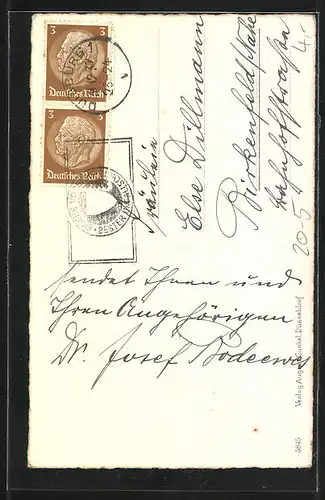 3 3
Deutsches Reich
3 3
Deutsches Reich
Fräulein
Else Dillmann
Birkenfeld/Nahe
Bahnhofstraße
4.-
20-5
sendet Ihnen und
Ihren Angehörigen
Dr. Josef Bodeewes
Düsseldorf
5835